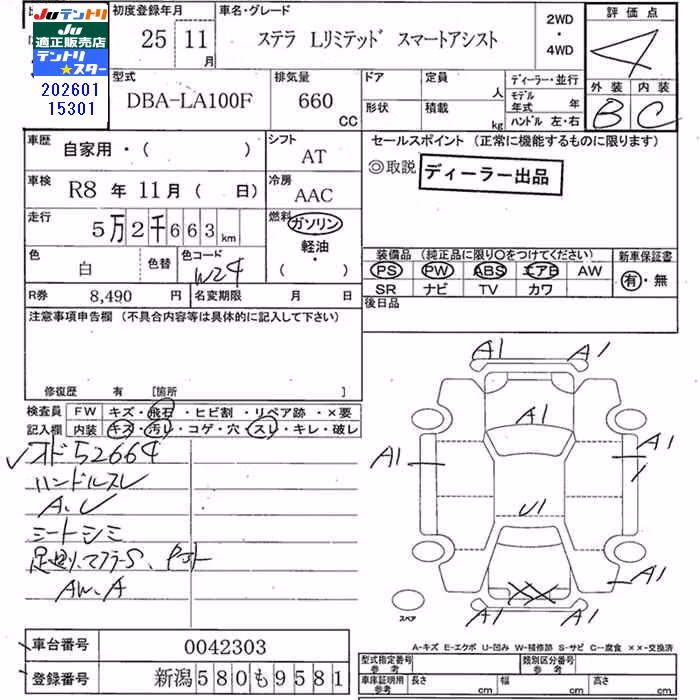 JU テントリ
JU適正販売店
テントリ★スター
202601
15301
初度登録年月
25 11月
車名・グレード
ステラ Lリミテッド スマートアシスト
2WD
・
4WD
評価点
4
外装 内装
B C
型式
DBA-LA100F
排気量
660 CC
ドア
形状
定員 人
積載 kg
ディーラー・並行
モデル年式 年
ハンドル 左・右
車歴
自家用・( )
シフト
AT
車検
R8 年 11月( 日)
冷房
AAC
走行
5万2千663km
燃料
ガソリン
軽油・
( )
色
白
色替
色コード
W24
R券
8,490 円
名変期限 月 日
セールスポイント (正常に機能するものに限ります)
◎取説 ディーラー出品
装備品 (純正品に限り〇をつけてください)
新車保証書
PS PW ABS エアB AW
SR ナビ TV カワ
有・無
後日品
注意事項申告欄 (不具合内容等は具体的に記入して下さい)
修復歴 有 [箇所 ]
検査員記入欄
FW キズ・飛石・ヒビ割・リペア跡・×要
内装 キズ・汚レ・コゲ・穴・スレ・キレ・破レ
オド52664
ハンドルスレ
A.U
シートシミ
足廻り、マフラーS、
AW.A
A1 A1
A1
A1 A1
U1
A1
XX
A1 A1
スペア
A-キズ E-エクボ U-凹み W-補修跡 S-サビ C-腐食 ××-交換済
車台番号
0042303
登録番号
新潟580も9581
型式指定番号
参考
類別区分番号
参考
車庫証明用
参考
長さ cm
幅 cm
高さ cm